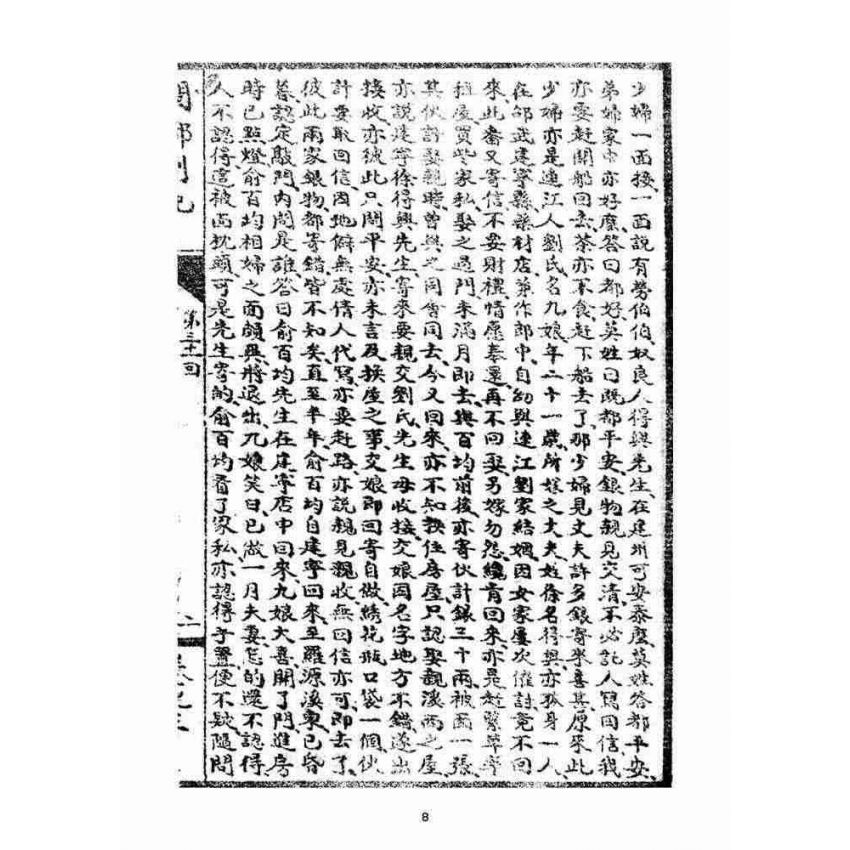 少婦一面接一面說有勞伯伯奴良人得興先生在建州可安泰麼莫姓答都平安
弟婦家中亦好麼答曰都好莫姓曰既都平安銀物親見交清不必託人寫回信我
亦要赶開船回去茶亦不食赶下船去了那少婦見丈夫許多銀寄來喜甚原來此
少婦亦是連江人劉氏名九娘年二十一歲所嫁之丈夫姓徐名得興亦孤身一人
在邵武建寧縣藥材店兼作郎中自幼與連江劉家結姻因女家屢次催討竟不回
來此番又寄信不要財禮情愿奉還再不回娶另嫁勿怨纔肯回來亦是赶緊草草
租屋買些家私娶之過門未滿月即去與百均前後亦寄伙計銀三十兩被面一張
其伙計娶親時曾與之同會同去今又回來亦不知換住房屋只認娶親溪西之屋
亦說建寧徐得興先生寄來要親交劉氏先生母收接交娘因名字地方不錯遂出
接收亦彼此只問平安亦未言及換屋之事交娘即回寄自做綉花瓶口袋一個伙
計要取回信因地僻無處倩人代寫亦要赶路亦說親見親收無回信亦可即去了
彼此兩家銀物都寄錯皆不知矣直至半年俞百均自建寧回來至羅源溪東已昏
暮認定敲門內問是誰答曰俞百均先生在建寧店中回來九娘大喜開了門進房
時已點燈俞百均相婦之面頗異將退出九娘笑曰已做一月夫妻怎的還不認得
人不認得這被面枕頭可是先生寄的俞百均看了家私亦認得乎置便不疑隨問
閩都別記
第三十一回
卷之三
8